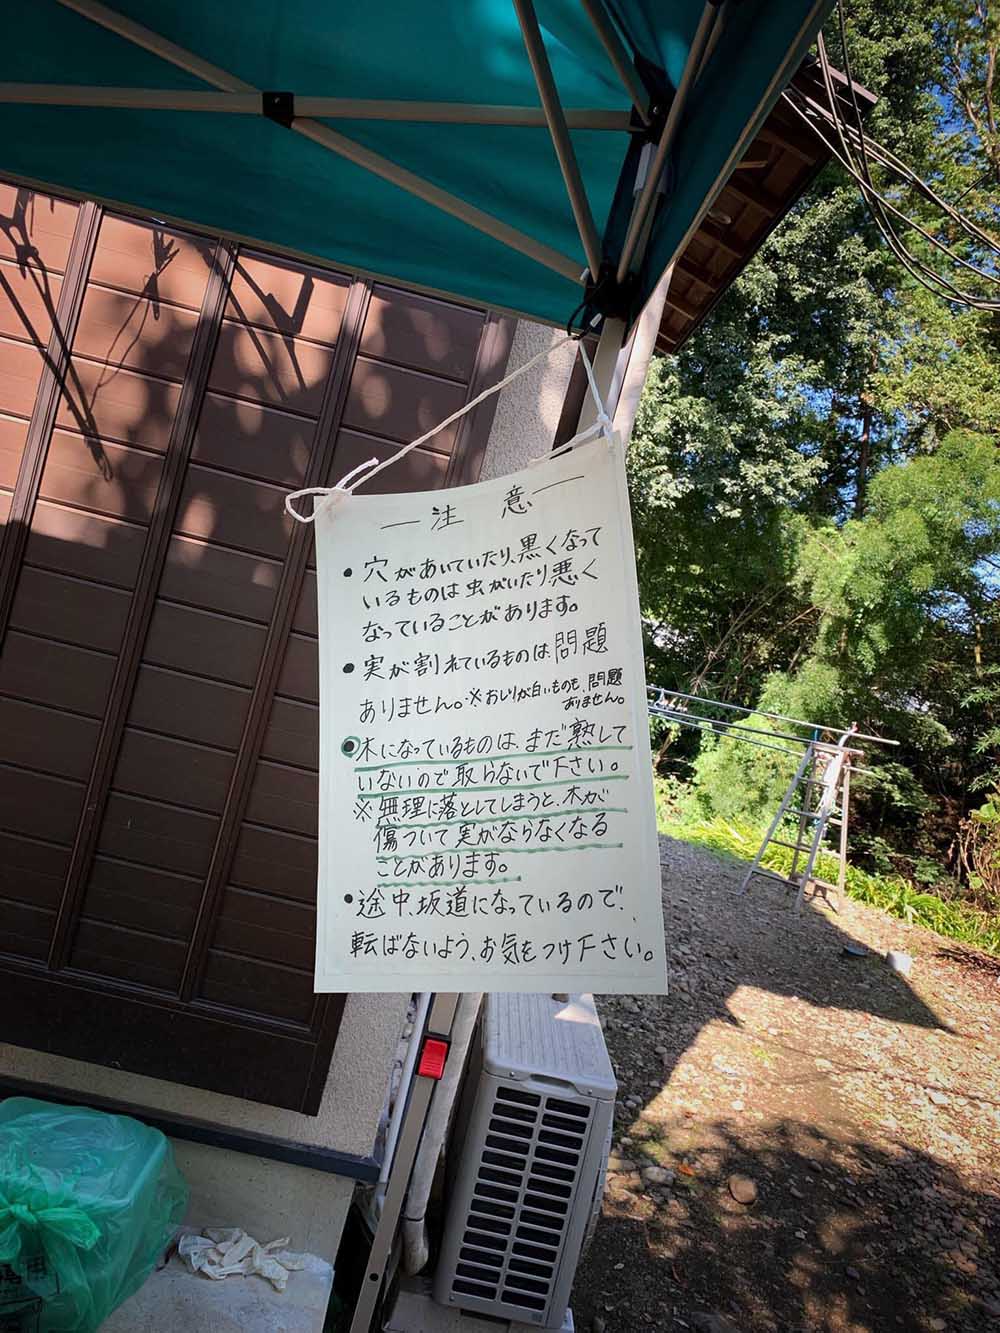 ― 注 意 ―
• 穴があいていたり、黒くなって
いるものは虫がいたり悪く
なっていることがあります。
• 実が割れているものは問題
ありません。※おしりが白いものも、問題
ありません。
• 木になっているものは、まだ熟して
いないので取らないで下さい。
※ 無理に落としてしまうと、木が
傷ついて実がならなくなる
ことがあります。
• 途中、坂道になっているので、
転ばないよう、お気をつけ下さい。